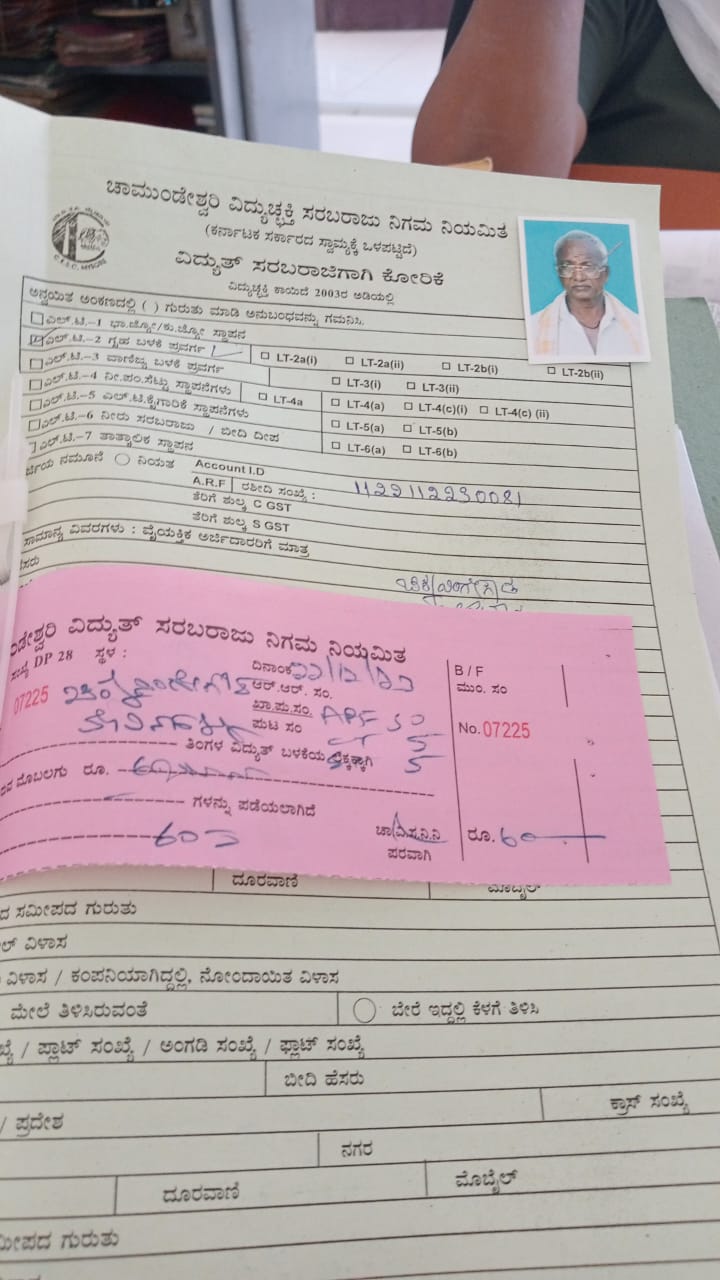 ಚಾಮುಂಡೇಶ್ವರಿ ವಿದ್ಯುಚ್ಛಕ್ತಿ ಸರಬರಾಜು ನಿಗಮ ನಿಯಮಿತ
(ಕರ್ನಾಟಕ ಸರ್ಕಾರದ ಸ್ವಾಮ್ಯಕ್ಕೆ ಒಳಪಟ್ಟಿದೆ)
ವಿದ್ಯುತ್ ಸರಬರಾಜಿಗಾಗಿ ಕೋರಿಕೆ
ವಿದ್ಯುಚ್ಛಕ್ತಿ ಕಾಯಿದೆ 2003ರ ಅಡಿಯಲ್ಲಿ
ಅನ್ವಯಿತ ಅಂಕಣದಲ್ಲಿ ( ) ಗುರುತು ಮಾಡಿ ಅನುಬಂಧವನ್ನು ಗಮನಿಸಿ.
ಎಲ್.ಟಿ.-1 ಭಾ.ಜ್ಯೋ/ಕು.ಜ್ಯೋ ಸ್ಥಾಪನ
ಎಲ್.ಟಿ.-2 ಗೃಹ ಬಳಕೆ ಪ್ರವರ್ಗ LT-2a(i) LT-2a(ii) LT-2b(i) LT-2b(ii)
ಎಲ್.ಟಿ.-3 ವಾಣಿಜ್ಯ ಬಳಕೆ ಪ್ರವರ್ಗ LT-3(i) LT-3(ii)
ಎಲ್.ಟಿ.-4 ನೀ.ಪಂ.ಸೆಟ್ಟು ಸ್ಥಾಪನೆಗಳು LT-4a LT-4(a) LT-4(c)(i) LT-4(c) (ii)
ಎಲ್.ಟಿ.-5 ಎಲ್.ಟಿ.ಕೈಗಾರಿಕೆ ಸ್ಥಾಪನೆಗಳು LT-5(a) LT-5(b)
ಎಲ್.ಟಿ.-6 ನೀರು ಸರಬರಾಜು / ಬೀದಿ ದೀಪ LT-6(a) LT-6(b)
ಎಲ್.ಟಿ.-7 ತಾತ್ಕಾಲಿಕ ಸ್ಥಾಪನ
ನಮೂನೆ ನಿಯತ Account I.D
A.R.F ರಶೀದಿ ಸಂಖ್ಯೆ : 1122112230081
ತೆರಿಗೆ ಶುಲ್ಕ C GST
ತೆರಿಗೆ ಶುಲ್ಕ S GST
ಸಾಮಾನ್ಯ ವಿವರಗಳು : ವೈಯಕ್ತಿಕ ಅರ್ಜಿದಾರರಿಗೆ ಮಾತ್ರ
ವಿದ್ಯುತ್ ಸರಬರಾಜು ನಿಗಮ ನಿಯಮಿತ
DP 28 ಸ್ಥಳ : ದಿನಾಂಕ B / F
07225 ಆರ್.ಆರ್. ಸಂ. ಮುಂ. ಸಂ
ಖಾ.ಪು.ಸಂ.
ಪುಟ ಸಂ No. 07225
ತಿಂಗಳ ವಿದ್ಯುತ್ ಬಳಕೆಯ ಲೆಕ್ಕಕ್ಕಾಗಿ
ಮೊಬಲಗು ರೂ.
ಗಳನ್ನು ಪಡೆಯಲಾಗಿದೆ
ಚಾ.ವಿ.ಸ.ನಿ.ನಿ ರೂ. 60
ಪರವಾಗಿ
ದೂರವಾಣಿ ಮೊಬೈಲ್
ಸಮೀಪದ ಗುರುತು
ವಿಳಾಸ
ವಿಳಾಸ / ಕಂಪನಿಯಾಗಿದ್ದಲ್ಲಿ, ನೋಂದಾಯಿತ ವಿಳಾಸ
ಮೇಲೆ ತಿಳಿಸಿರುವಂತೆ ಬೇರೆ ಇದ್ದಲ್ಲಿ ಕೆಳಗೆ ತಿಳಿಸಿ
/ ಪ್ಲಾಟ್ ಸಂಖ್ಯೆ / ಅಂಗಡಿ ಸಂಖ್ಯೆ / ಫ್ಲಾಟ್ ಸಂಖ್ಯೆ
ಬೀದಿ ಹೆಸರು
/ ಪ್ರದೇಶ ಕ್ರಾಸ್ ಸಂಖ್ಯೆ
ನಗರ
ದೂರವಾಣಿ ಮೊಬೈಲ್
ಗುರುತು